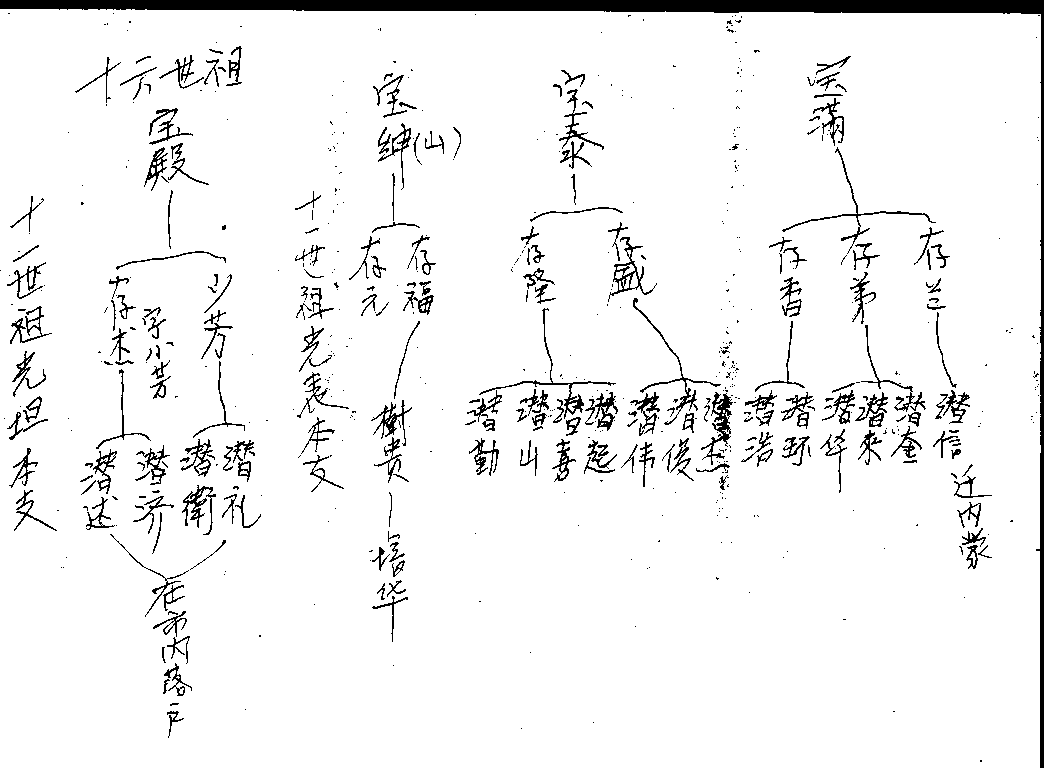 十六世祖
宝殿
存杰
字小芳
少芳
潜述
潜济
潜衛
潜礼
在市内落户
十一世祖光坦本支
宝绅(山)
存元
存福
樹贵
培华
十一世祖光表本支
宝泰
存隆
存盛
潜勤
潜山
潜喜
潜起
潜伟
潜俊
潜杰
宝满
存香
存弟
存兰
潜浩
潜环
潜华
潜来
潜金
潜信
迁内蒙